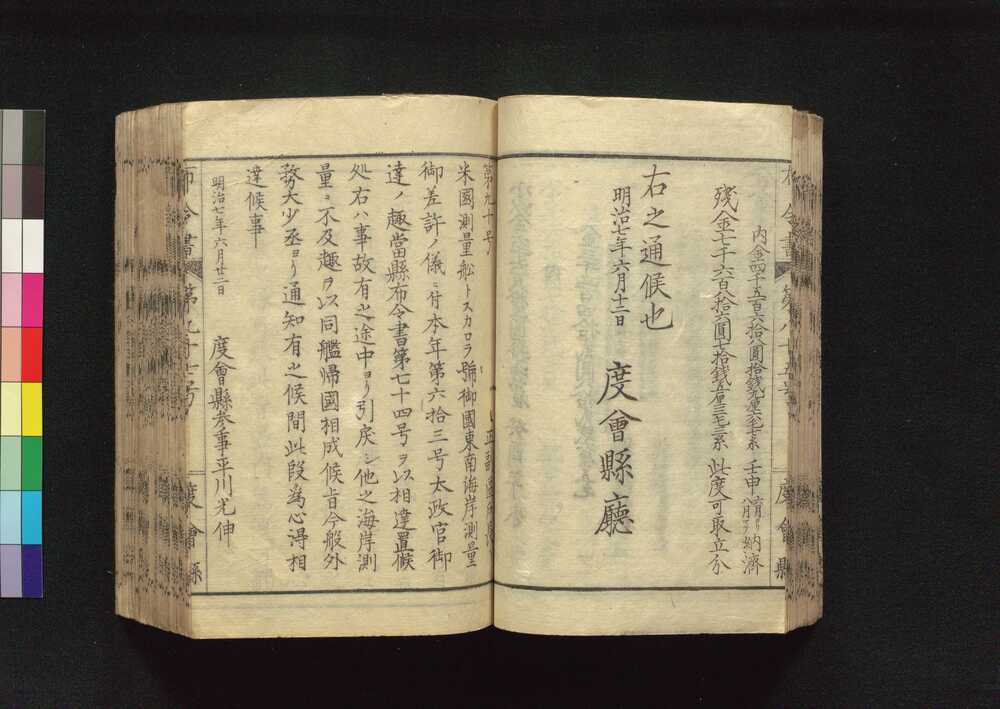 内金四千五百六拾八圓拾銭九厘六毛七糸 壬申 六月ヨリ八月マテ 納済
残金七千六百八拾六圓七拾銭五厘三毛三糸 此度可取立分
右之通候也
明治七年六月十二日
度會縣廳
度會縣
第九十号
米國測量舩トスカロラ號御國東南海岸測量
御差許ノ儀ニ付本年第六拾三号太政官御
達ノ趣當縣布令書第七十四号ヲ以相達置候
処右ハ事故有之途中ヨリ引戻シ他之海岸測
量ニ不及趣ヲ以同艦帰國相成候旨今般外
務大少丞ヨリ通知有之候間此段為心淂相
達候事
明治七年六月廿二日
度會縣参事平川光伸
布令書
度會縣